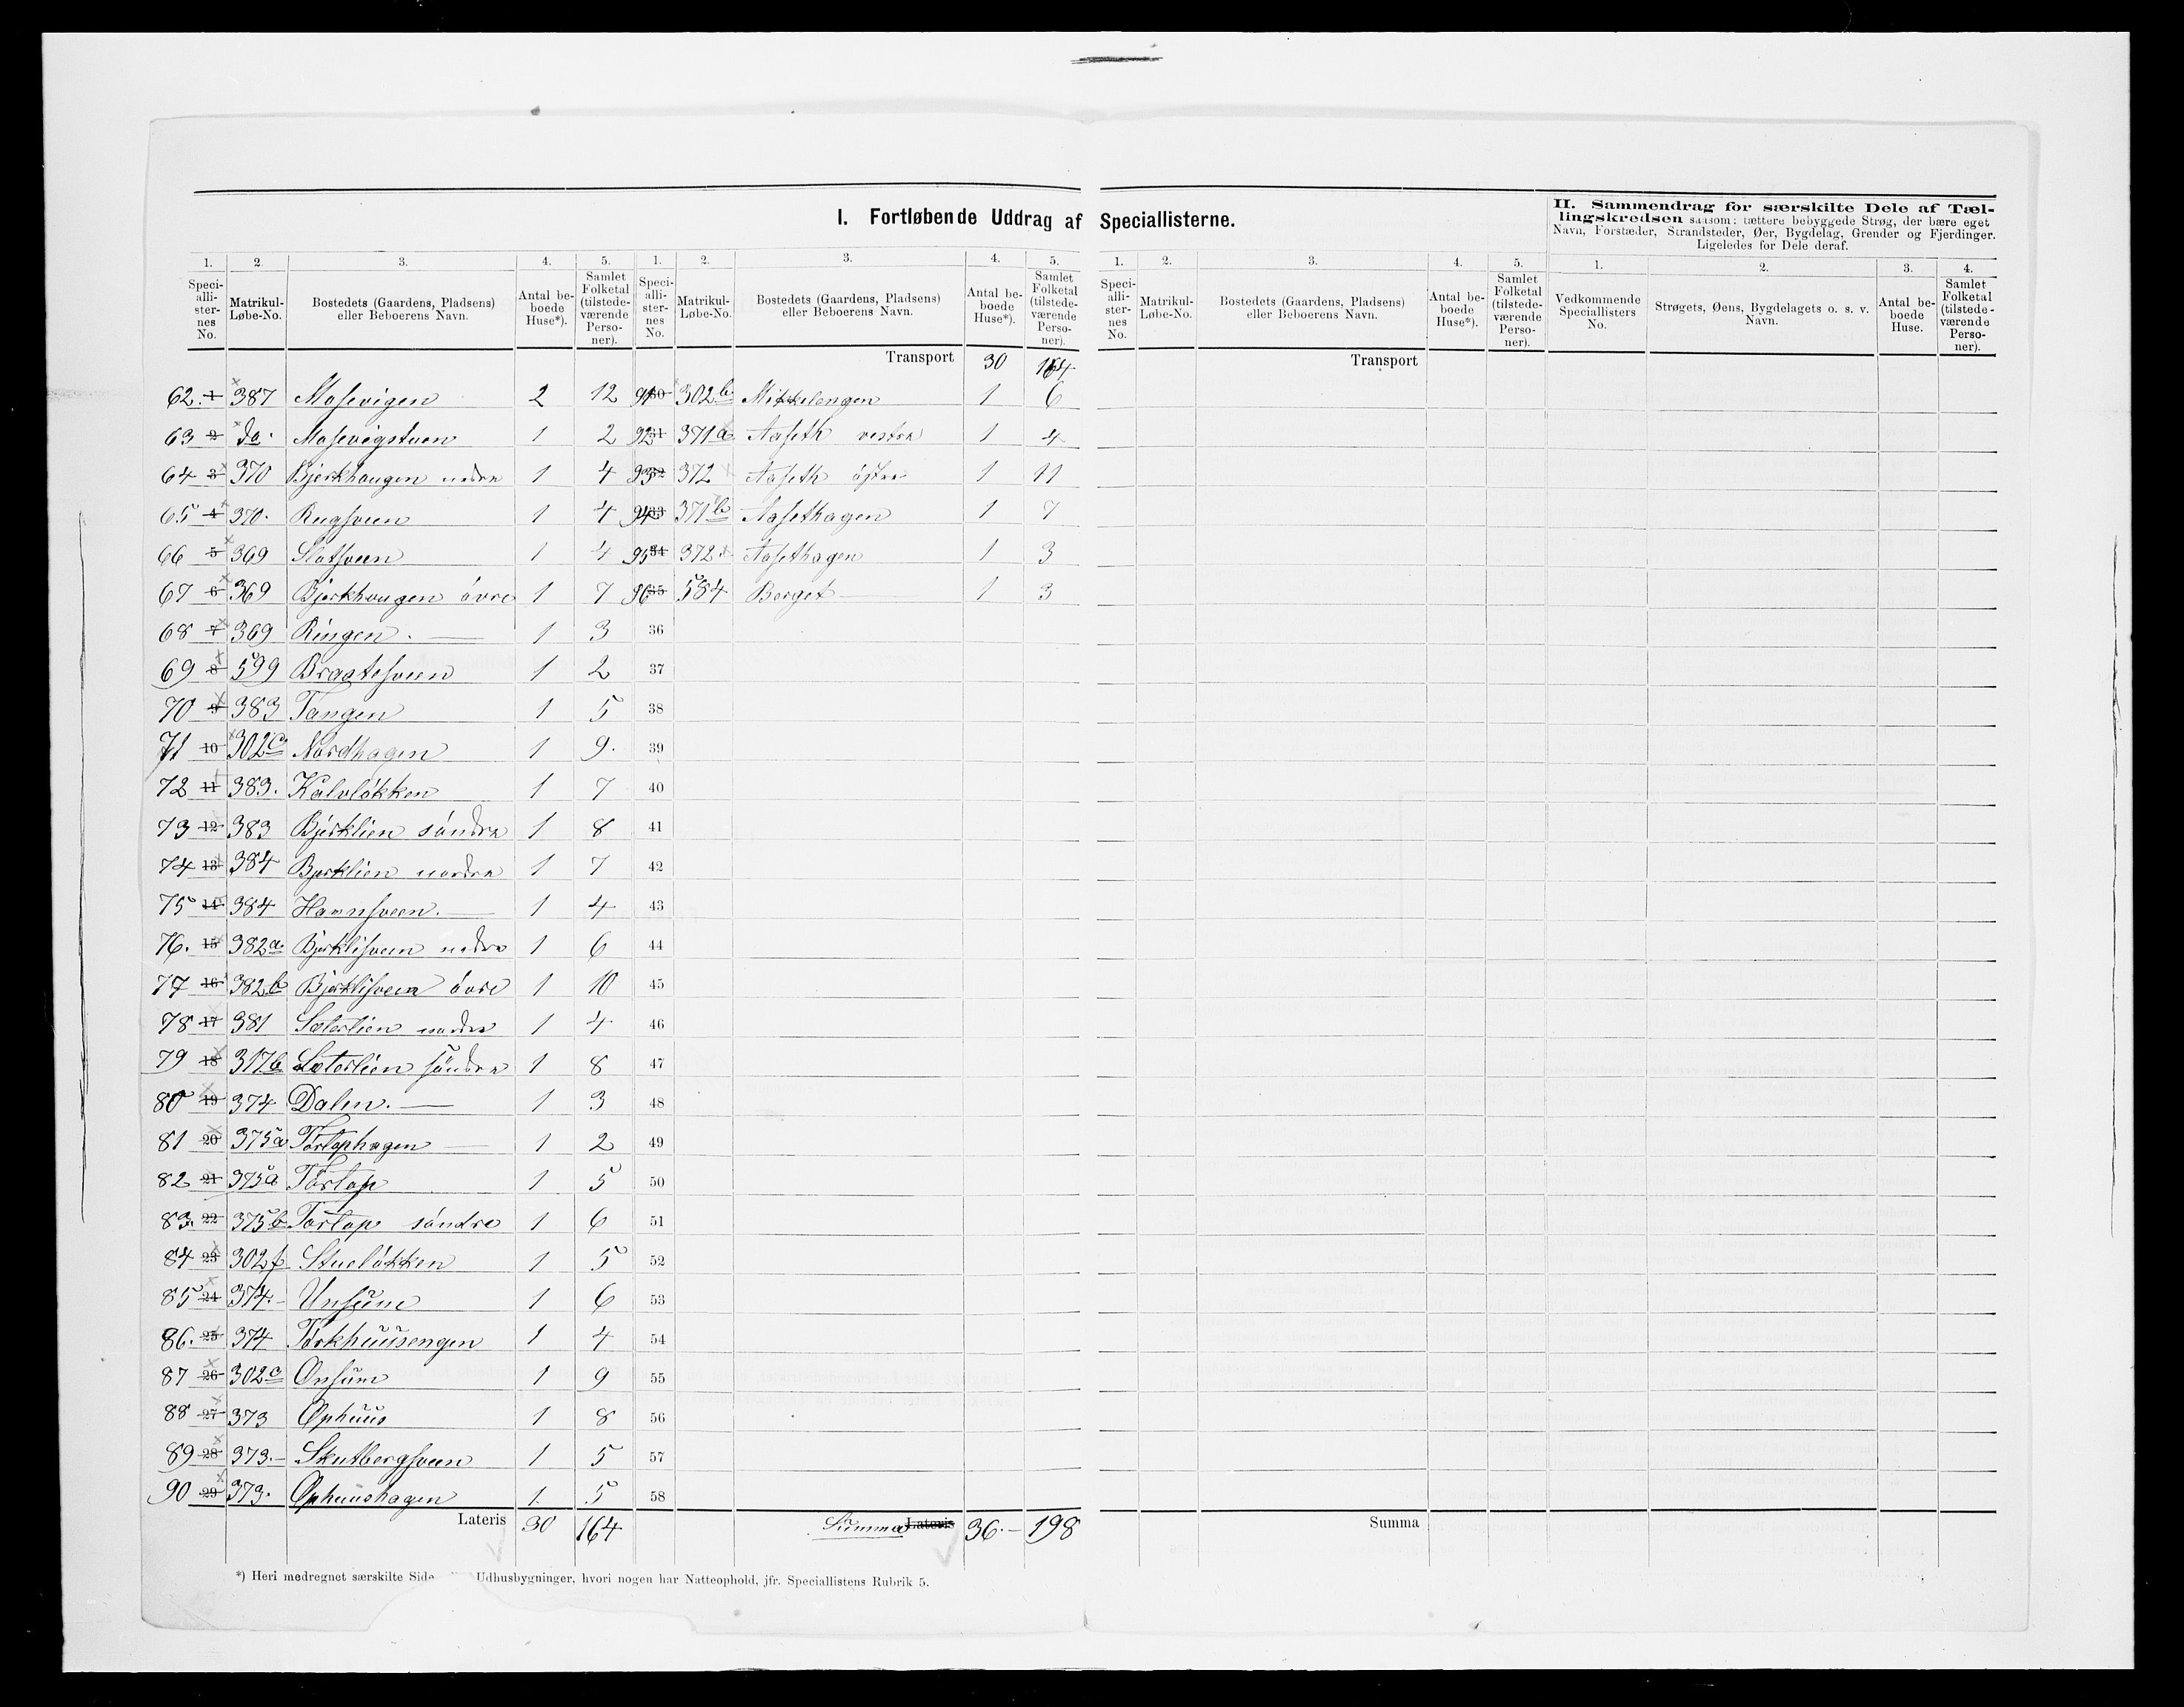 I. Fortløbende Uddrag af Speciallisterne.
II. Sammendrag for særskilte Dele af Tællingskredsen saasom: tættere bebyggede Strøg, der bære eget Navn, Forstæder, Strandsteder, Øer, Bygdelag, Grender og Fjerdinger. Ligeledes for Dele deraf.
1. 2. 3. 4. 5. 1. 2. 3. 4. 5. 1. 2. 3. 4. 5. 1. 2. 3. 4.
Speciallisternes No. Matrikul-Løbe-No. Bostedets (Gaardens, Pladsens) eller Beboerens Navn. Antal beboede Huse*). Samlet Folketal (tilstedeværende Personer).
Speciallisternes No. Matrikul-Løbe-No. Bostedets (Gaardens, Pladsens) eller Beboerens Navn. Antal beboede Huse*). Samlet Folketal (tilstedeværende Personer).
Speciallisternes No. Matrikul-Løbe-No. Bostedets (Gaardens, Pladsens) eller Beboerens Navn. Antal beboede Huse*). Samlet Folketal (tilstedeværende Personer).
Vedkommende Speciallisters No. Strøgets, Øens, Bygdelagets o. s. v. Navn. Antal beboede Huse. Samlet Folketal (tilstedeværende Personer).
Transport 30 164 Transport
62. 1 387 Mosevigen 2 12 91 30 302b Mikkelengen 1 6
63 2 do. Mosevigstuen 1 2 92 31 371a Aaseth vestre 1 4
64 3 370 Bjerkhaugen nedre 1 4 93 32 372 Aaseth östre 1 11
65 4 370. Rugsveen 1 4 94 33 371b Aasethagen 1 7
66 5 369 Slatsveen 1 4 95 34 372 Aasethagen 1 3
67 6 369 Bjerkhaugen övre 1 7 96 35 584 Berget 1 3
68 7 369 Ringen. 1 3 36
69 8 599 Bragtesveen 1 2 37
70 9 383 Tangen 1 5 38
71 10 302c Nordhagen 1 9. 39
72 11 383. Kalvlökken 1 7 40
73 12 383 Bjerklien söndre 1 8 41
74 13 384 Bjerklien nordre 1 7 42
75 14 384 Hannsveen. 1 4 43
76. 15 382a Bjerklisveen nedre 1 6 44
77 16 382b Bjerklisveen övre 1 10 45
78 17 381 Sæterlien nordre 1 4 46
79 18 317b Sæterlien söndre 1 8 47
80 19 374 Dalen. 1 3 48
81 20 375a Törtophagen 1 2 49
82 21 375a Törtop 1 5 50
83. 22 375b Törtop söndre 1 6 51
84 23 302f Stuelökken 1 5 52
85 24 374. Unsum 1 6 53
86. 25 374 Törkhuusengen 1 4 54
87 26 302c Onsum 1 9 55
88 27 373 Ophuus 1 8 56
89 28 373. Skutbergsveen 1 5 57
90 29 373. Ophuushagen 1. 5 58
Lateris 30 164 Summa Lateris 36. 198 Summa
*) Heri medregnet særskilte Side Udhusbygninger, hvori nogen har Natteophold, jfr. Speciallistens Rubrik 5.